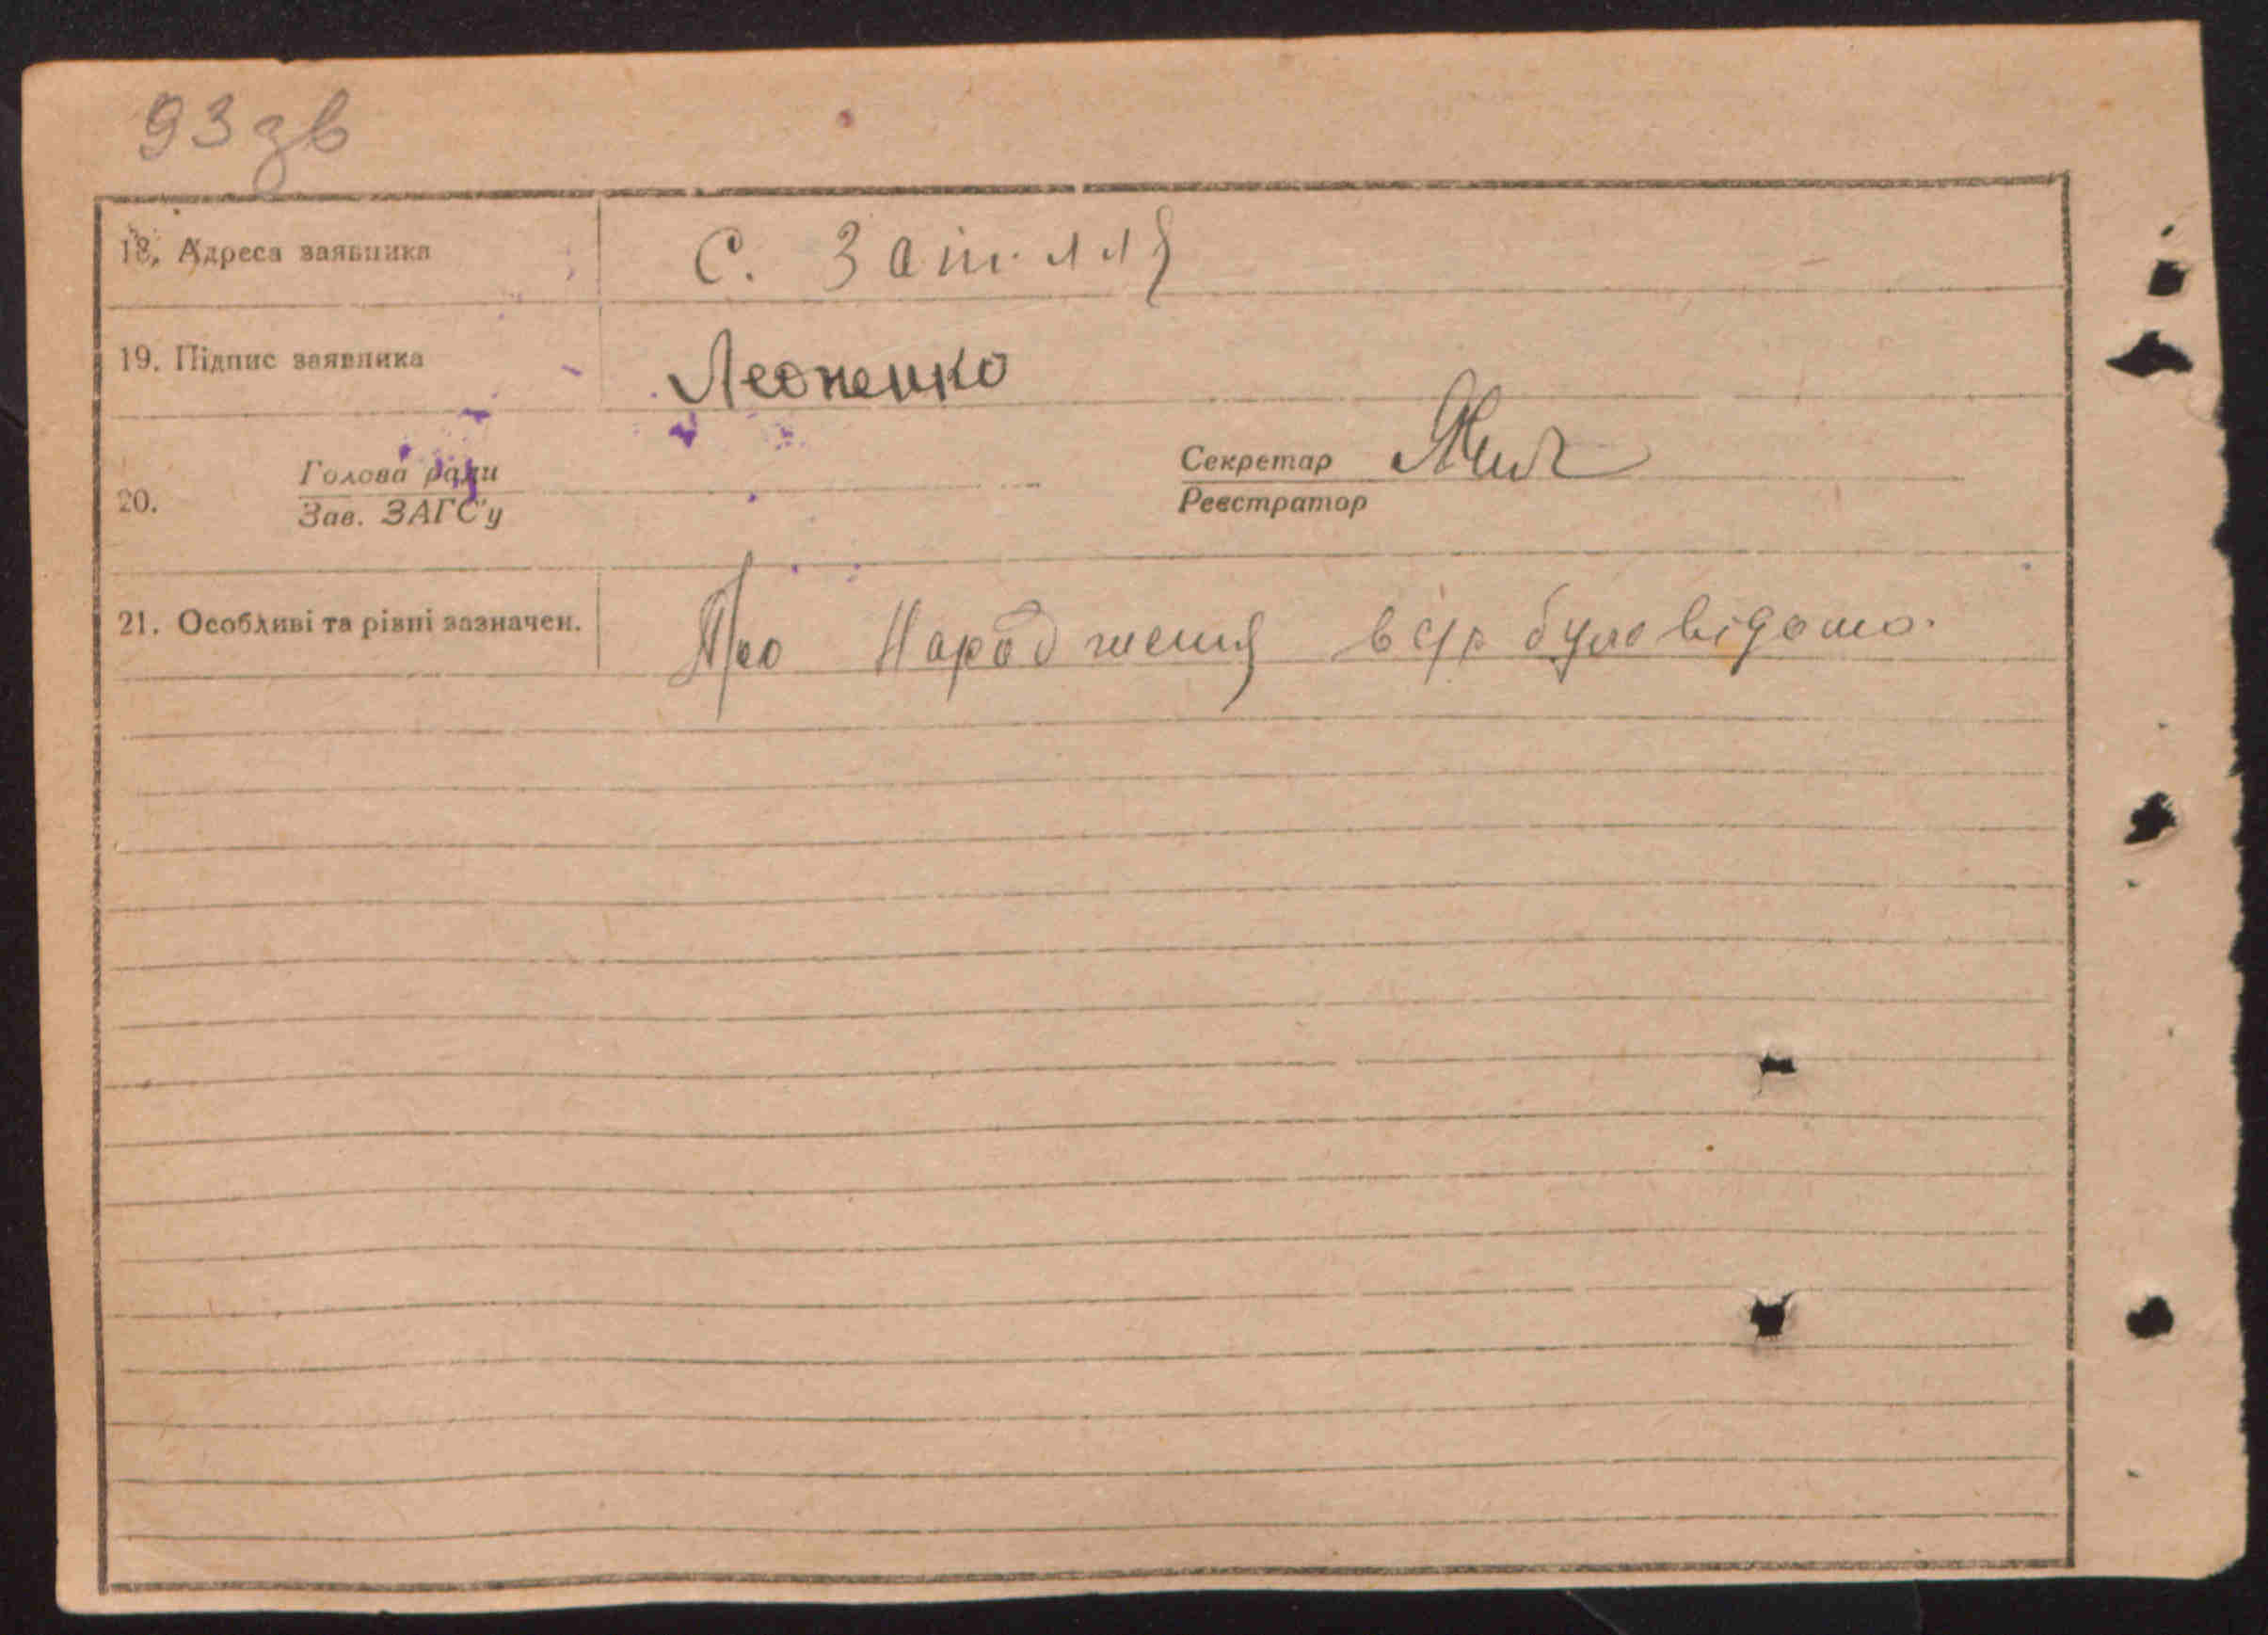 93 зв
18. Адреса заявника с. Затилля
19. Підпис заявника Леоненко
Голова ради Секретар
20.
Зав. ЗАГС'у Реєстратор
21. Особливі та рівні зазначен. Про Народження в с/р було відомо.